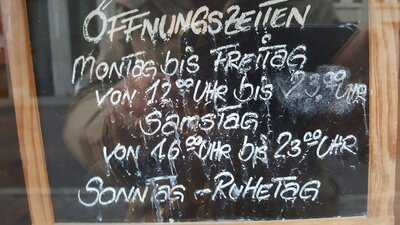 ÖFFNUNGSZEITEN
MONTAG bis FREITAG
VON 12⁰⁰ UHR bis 23⁰⁰ UHR
SAMSTAG
VON 16⁰⁰ UHR bis 23⁰⁰ UHR
SONNTAG - RUHETAG